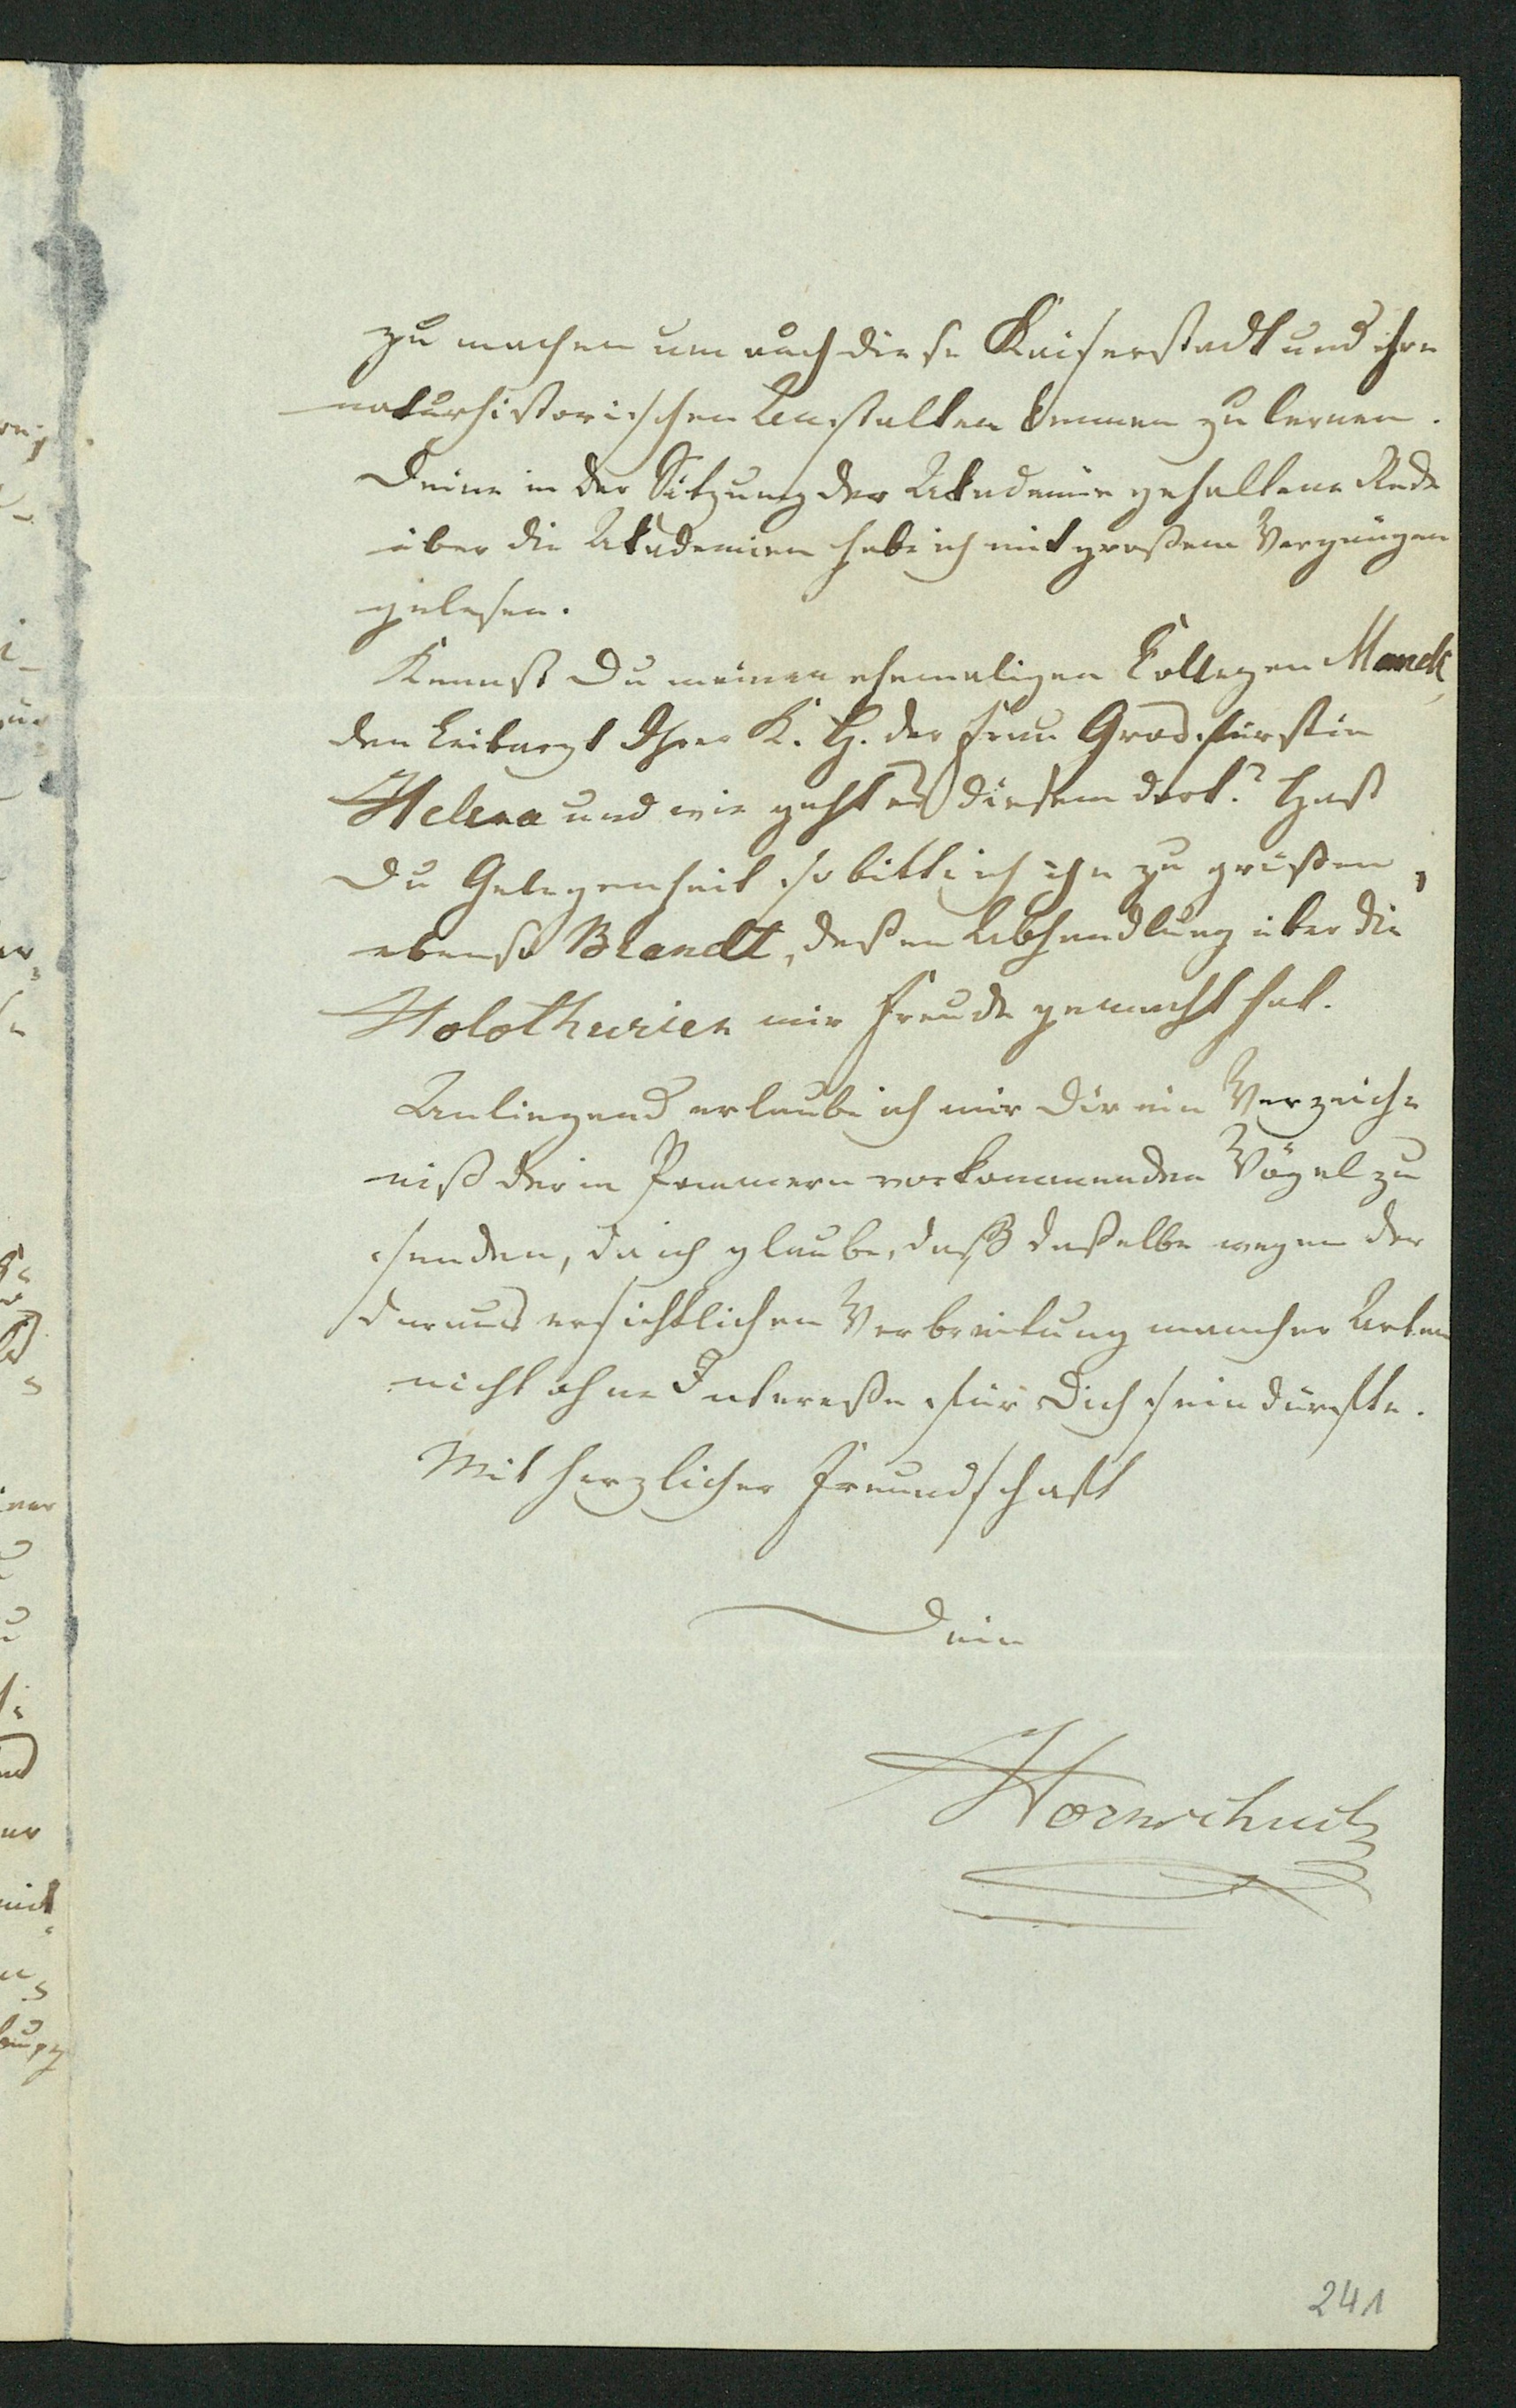 zu machen um auch diese Kaiserstadt und ihre
naturhistorischen Anstalten kennen zu lernen.
Deine in der Sitzung der Akademie gehaltene Rede
über die Akademien habe ich mit großem Vergnügen
gelesen.
Kennst Du meinen ehemaligen Collegen Mandt,
den Leibarzt Ihrer K. H. der Frau Grosfürstin
Helena und wie geht es diesem dort? Hast
Du Gelegenheit so bitte ich ihn zu grüßen,
ebenso Brandt, deßen Abhandlung über die
Holothurien mir Freude gemacht hat.
Anliegend erlaube ich mir Dir ein Verzeich-
niß der in Pommern vorkommenden Vögel zu
senden, da ich glaube, daß daßelbe wegen der
daraus ersichtlichen Verbreitung mancher Arten
nicht ohne Intereße für Dich sein dürfte.
Mit herzlicher Freundschaft
Dein
Hornschuch
241